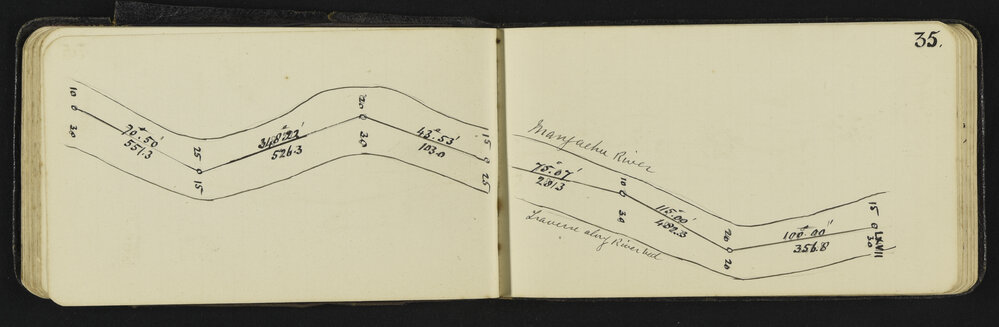 35.
10
0
30
70° 50'
551.3
25
0
15
348° 23'
526.3
20
0
30
43° 53'
103.0
15
0
25
River
75° 07'
281.3
10
0
30
Traverse along River bed
115° 00'
482.3
20
0
20
100° 00'
356.8
15
0 LXVII
30